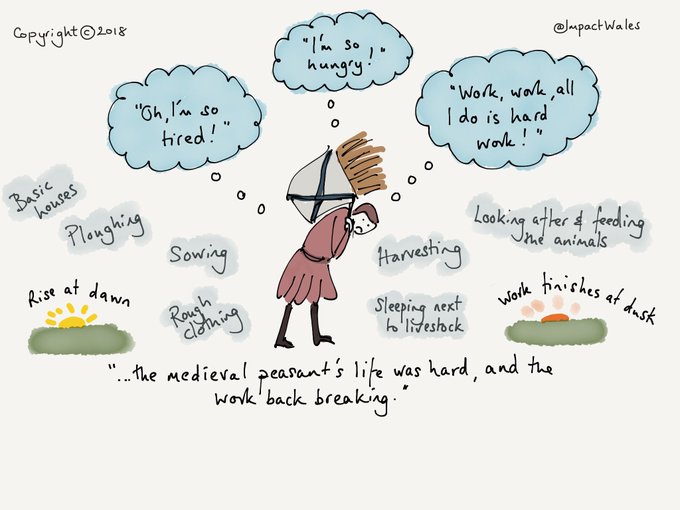 Copyright © 2018
@ImpactWales
"I'm so
hungry!"
"Oh, I'm so
tired!"
"Work, work, all
I do is hard
work!"
Basic
houses
Ploughing
Sowing
Harvesting
Looking after & feeding
the animals
Rise at dawn
Rough
clothing
Sleeping next
to livestock
Work finishes at dusk
"...the medieval peasant's life was hard, and the
work back breaking."